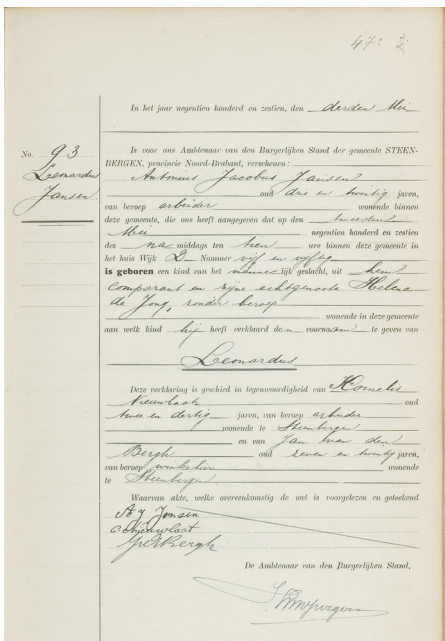 47
In het jaar negentien honderd en zestien, den derden Mei
No. 93
Leonardus
Jansen
Is voor ons Ambtenaar van den Burgerlijken Stand der gemeente STEEN-
BERGEN, provincie Noord-Brabant, verschenen:
Antonius Jacobus Jansen
oud drie en twintig jaren,
van beroep arbeider wonende binnen
deze gemeente, die ons heeft aangegeven dat op den tweeden
Mei negentien honderd en zestien
des na middags ten tien ure binnen deze gemeente in
het huis Wijk D Nommer vijf en vijftig
is geboren een kind van het mannelijk geslacht, uit hem
comparant en zijne echtgenoote Helena
de Jong, zonder beroep
wonende in deze gemeente
aan welk kind hij heeft verklaard den voornaam te geven van
Leonardus
Deze verklaring is geschied in tegenwoordigheid van Kornelis
Nieuwlaat oud
twee en dertig jaren, van beroep arbeider
wonende te Steenbergen
en van Jan van den
Bergh oud zeven en twintig jaren,
van beroep winkelier wonende
te Steenbergen
Waarvan akte, welke overeenkomstig de wet is voorgelezen en geteekend
A. J. Jansen
C. Nieuwlaat
Bergh
De Ambtenaar van den Burgerlijken Stand,